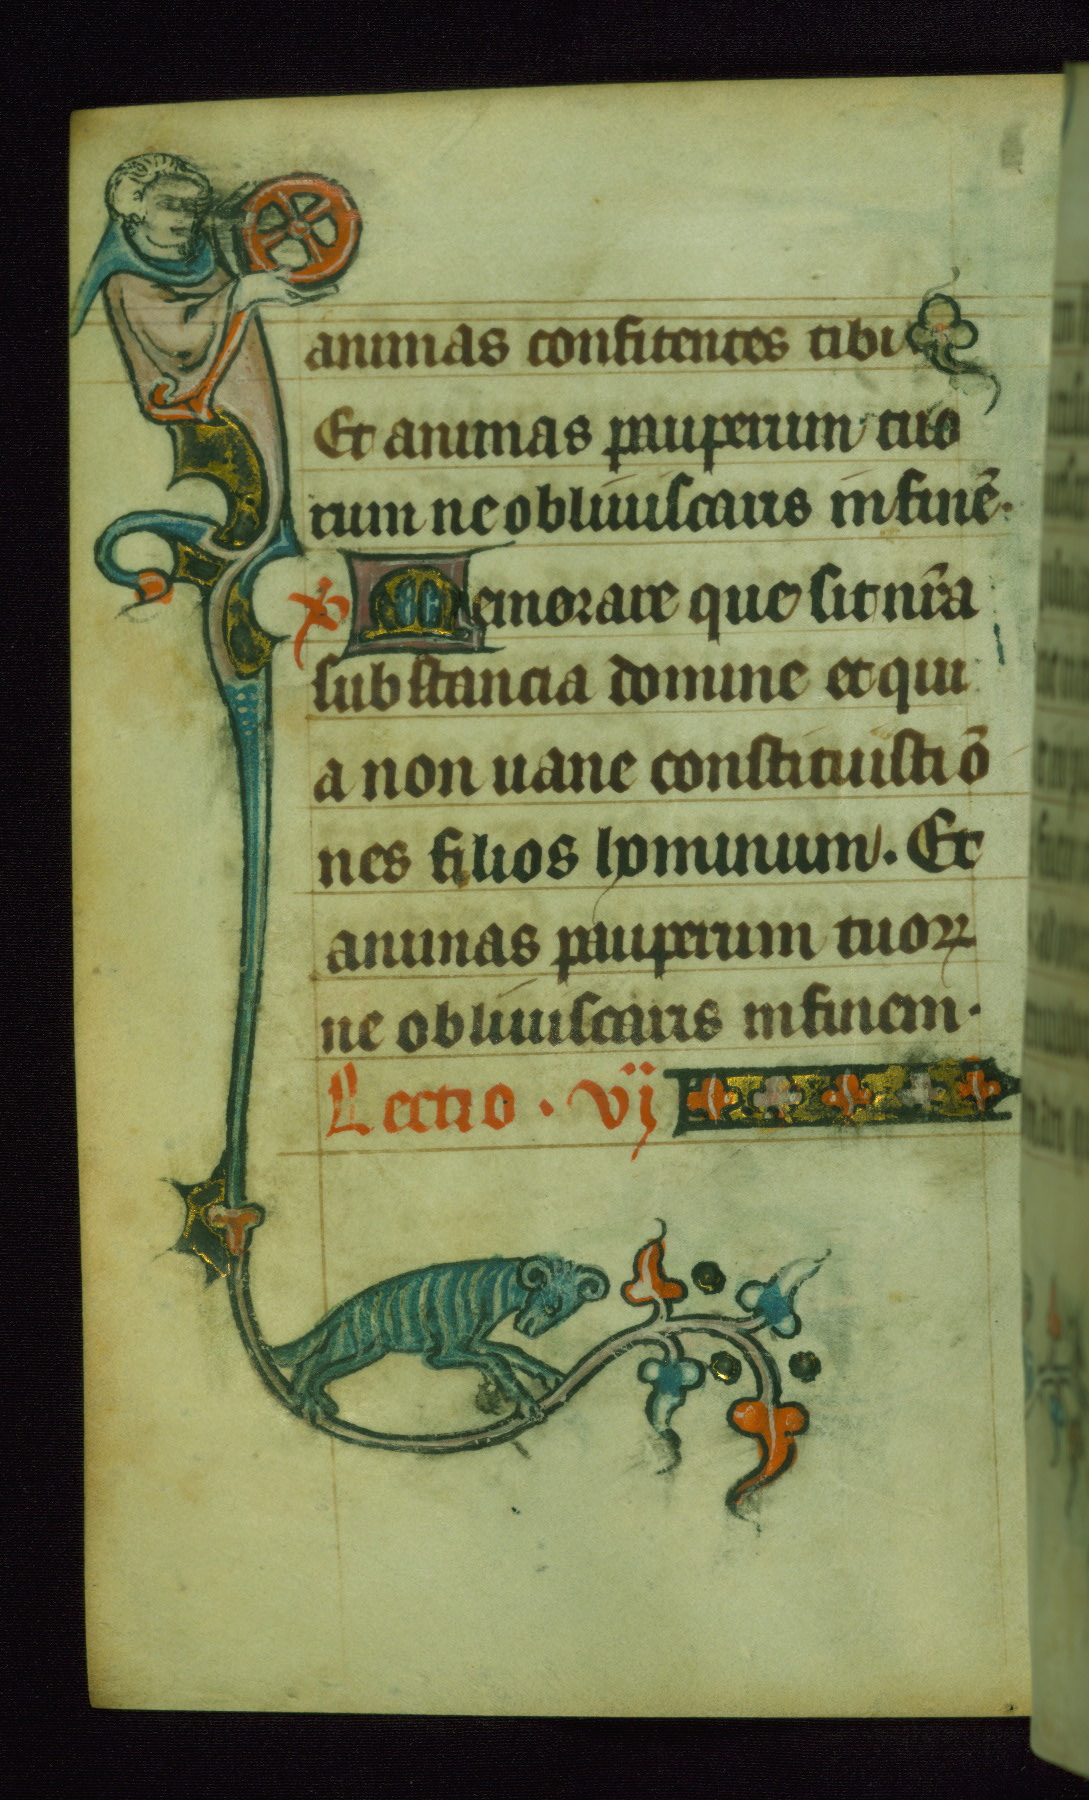 animas confitentes tibi
Et animas pauperum tuo
rum ne obliuiscaris in finē.
Memorare que sit nr̄a
substancia domine et qui
a non uane constituisti o᷑
nes filios hominum. Et
animas pauperum tuoꝝ
ne obliuiscaris in finem.
Lectio. vij